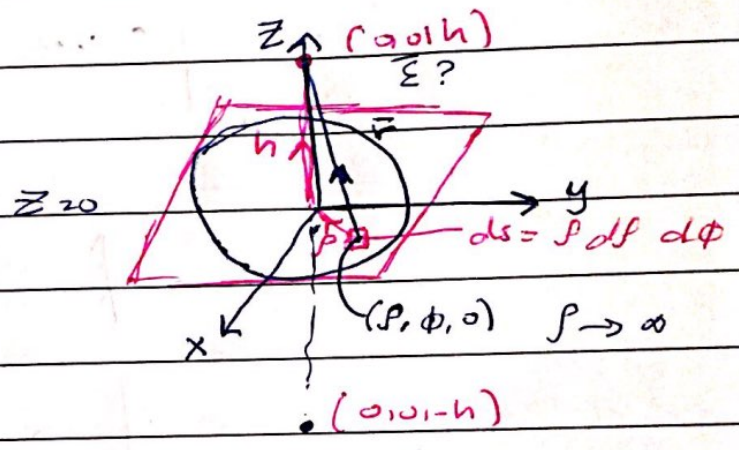 Z (0,0,h)
Ē ?
r̄
h
Z=0
y
ρ̄
ds = ρ dρ dφ
(ρ, φ, 0) ρ → ∞
x
(0,0,-h)